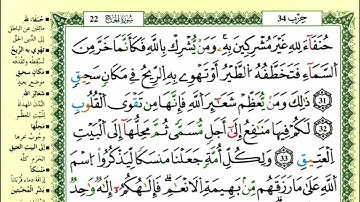 حِزْب 34
سُورَةُ الْحَجِّ 22
حُنَفَآءَ لِلَّهِ غَيْرَ مُشْرِكِينَ بِهِۦ ۚ وَمَن يُشْرِكْ بِاللَّهِ فَكَأَنَّمَا خَرَّ مِنَ
السَّمَآءِ فَتَخْطَفُهُ الطَّيْرُ أَوْ تَهْوِى بِهِ الرِّيحُ فِى مَكَانٍ سَحِيقٍ
31 ذَٰلِكَ وَمَن يُعَظِّمْ شَعَٰٓئِرَ اللَّهِ فَإِنَّهَا مِن تَقْوَى الْقُلُوبِ
32 لَكُمْ فِيهَا مَنَٰفِعُ إِلَىٰٓ أَجَلٍ مُّسَمًّى ثُمَّ مَحِلُّهَآ إِلَى الْبَيْتِ
الْعَتِيقِ 33 وَلِكُلِّ أُمَّةٍ جَعَلْنَا مَنسَكًا لِّيَذْكُرُوا اسْمَ
اللَّهِ عَلَىٰ مَا رَزَقَهُم مِّنۢ بَهِيمَةِ الْأَنْعَٰمِ ۗ فَإِلَٰهُكُمْ إِلَٰهٌ وَٰحِدٌ
حُنَفَاءَ لله
مَائِلِينَ عن الباطل
إلى الدِّين الحق
تَهْوِي به الرِّيح
تُسقِطُه وتَقذفُه
مكانٍ سحيق
شعائر الله
محلّها
البيت العتيق